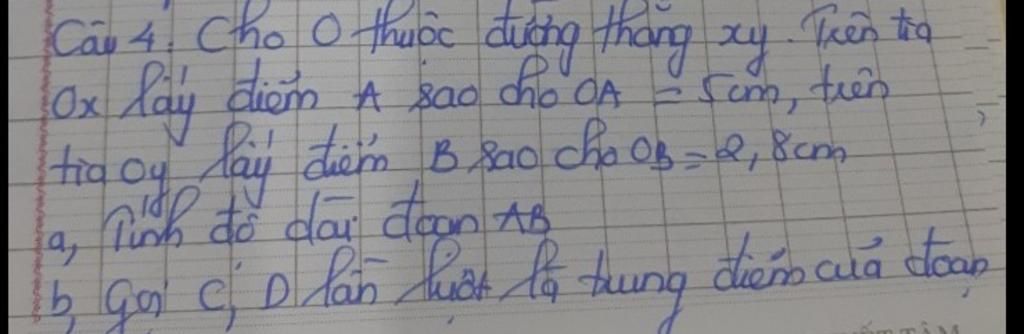 Câu 4. Cho O thuộc đường thẳng xy. Trên tia
Ox lấy điểm A sao cho OA = 5cm, trên
tia Oy lấy điểm B sao cho OB = 2,8cm
a, Tính độ dài đoạn AB
b, Gọi C, D lần lượt là trung điểm của đoạn